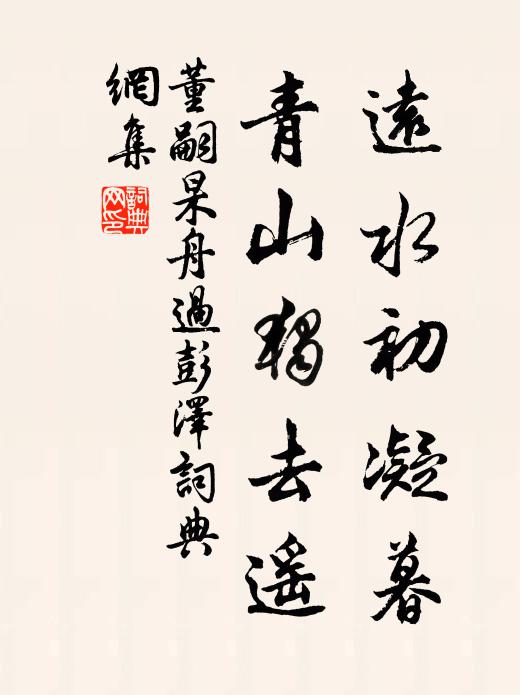 遠水初凝暮
青山獨去遥
董嗣杲舟過彭澤詞典
網集
詞典
网印